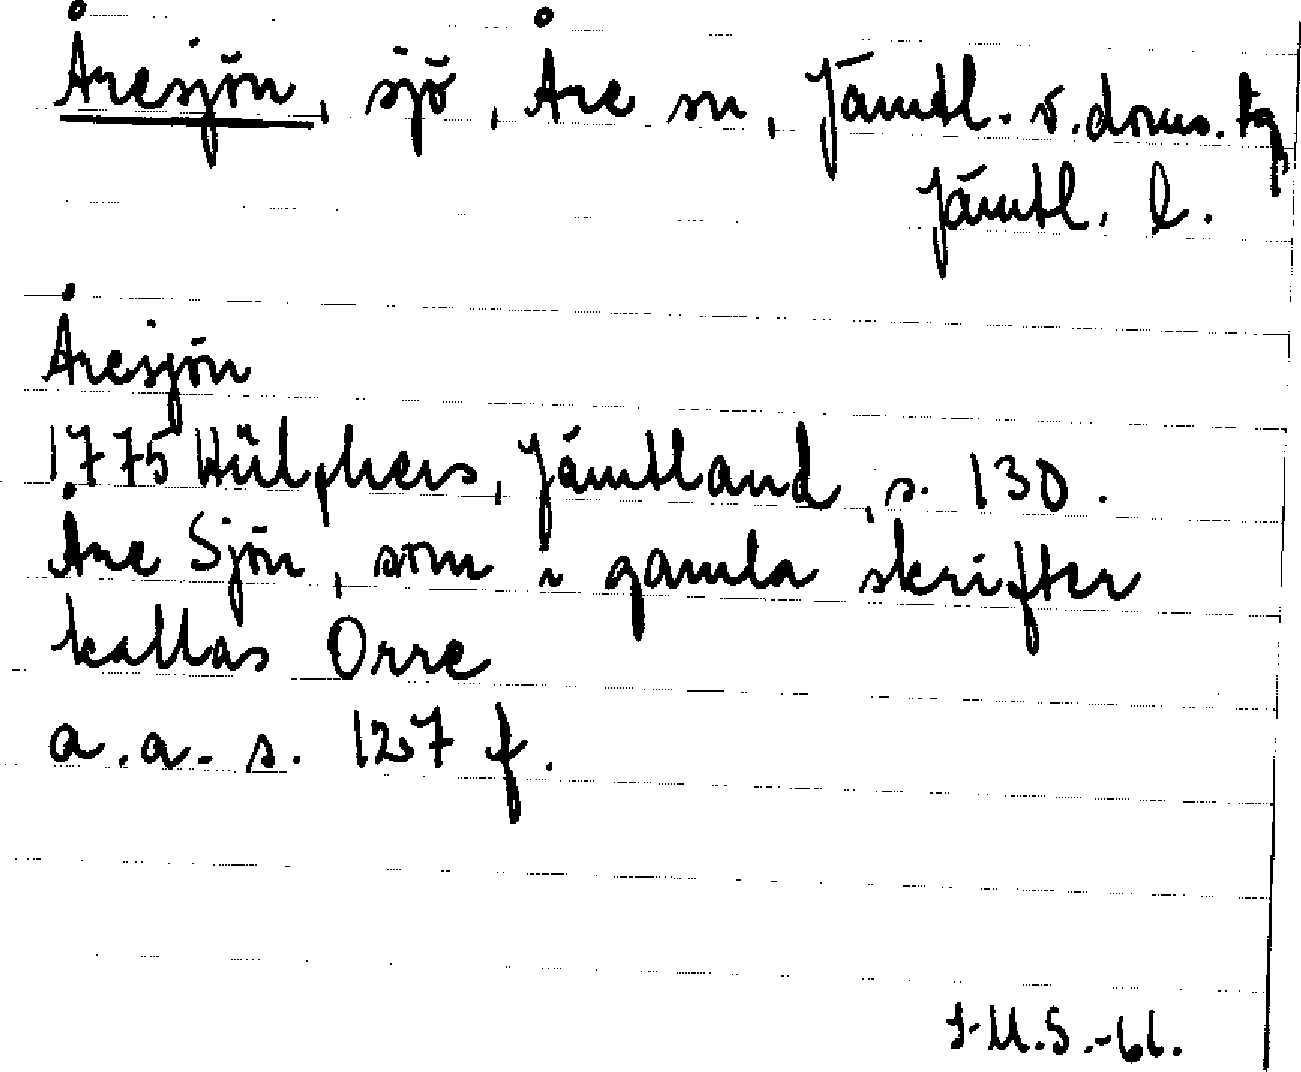 Åresjön, sjö, Åre sn, Jämtl. v. doms. tg
Jämtl. l.
Åresjön
1775 Hülphers, Jämtland, s. 130.
Åre Sjön, som i gamla skrifter
kallas Orre
a.a. s. 127 f.